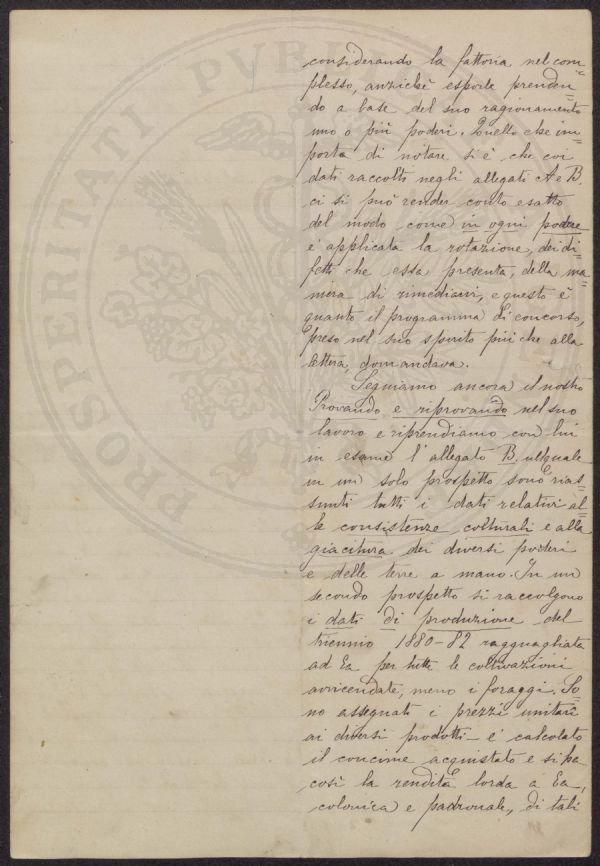 considerando la fattoria nel com=
plesso, anzichè esporle prenden=
do a base del suo ragionamento
uno o più poderi. Quello che im=
porta di notare si è che coi
dati raccolti negli allegati A e B.
ci si può render conto esatto
del modo come in ogni podere
è applicata la rotazione, dei di=
fetti che essa presenta, della ma=
niera di rimediarvi, e questo è
quanto il programma di concorso,
preso nel suo spirito più che alla
lettera, domandava.
Seguiamo ancora il nostro
Provando e riprovando nel suo
lavoro e riprendiamo con lui
in esame l'allegato B. nel quale
in un solo prospetto sono rias=
sunti tutti i dati relativi al=
le consistenze colturali e alla
giacitura dei diversi poderi
e delle terre a mano. In un
secondo prospetto si raccolgono
i dati di produzione del
triennio 1880-82 ragguagliata
ad Ea per tutte le coltivazioni
avvicendate, meno i foraggi. So=
no assegnati i prezzi unitarii
ai diversi prodotti - è calcolato
il concime acquistato e si ha
così la rendita lorda a Ea,
colonica e padronale, di tali
PROSPERITATI PVBLI